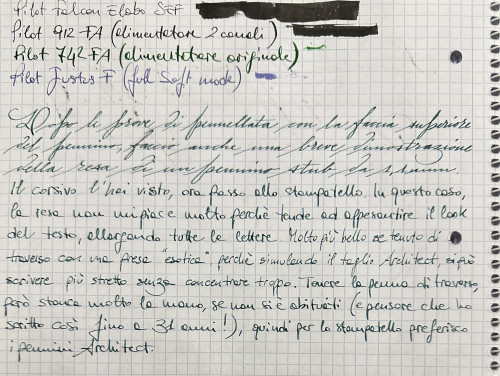 Pilot Falcon Elabo SEF
Pilot 912 FA (alimentatore 2 canali)
Pilot 742 FA (alimentatore originale)
Pilot Justus F (full Soft mode)
Dopo le prove di pennellata, con la faccia superiore
del pennino, faccio anche una breve dimostrazione
della resa di un pennino stub da 1,1mm.
Il corsivo l'hai visto, ora passo allo stampatello. In questo caso,
la resa non mi piace molto perché tende ad appesantire il look
del testo, allargando tutte le lettere. Molto più bello se tenuto di
traverso con una presa "esotica" perché simulando il taglio Architect, si può
scrivere più stretto senza concentrare troppo. Tenere la penna di traverso,
però stanca molto la mano, se non si è abituati (e pensare che ho
scritto così fino a 31 anni!), quindi per lo stampatello preferisco
i pennini Architect.